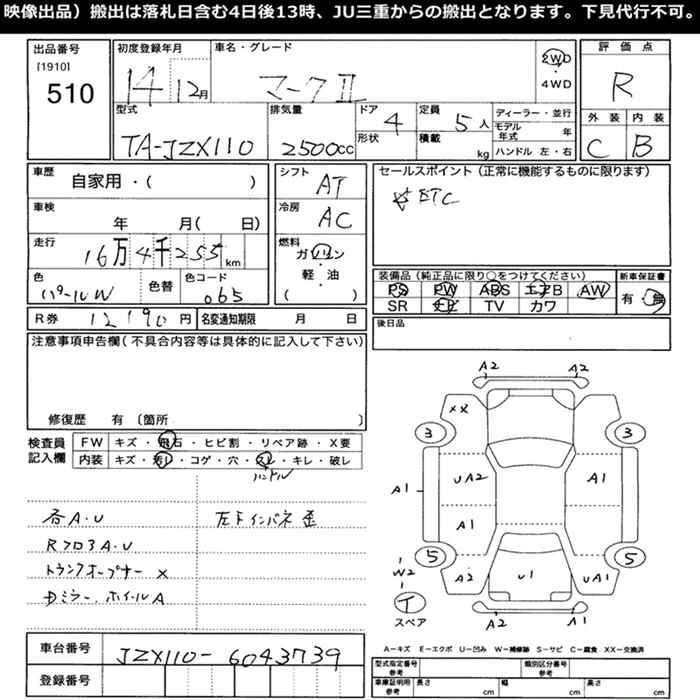 映像出品）搬出は落札日含む4日後13時、JU三重からの搬出となります。下見代行不可。
出品番号 初度登録年月 車名・グレード 2WD 評価点
[1910] 14 12月 マークII ・ R
510 4WD
型式 排気量 ドア 4 定員 5人 ディーラー・並行 外装 内装
TA-JZX110 2500cc 形状 積載 kg モデル年式 年 C B
ハンドル 左・右
車歴 自家用・( ) シフト AT セールスポイント（正常に機能するものに限ります）
車検 年 月( 日) 冷房 AC ☆ETC
走行 16万4千255km 燃料 ガソリン
・
軽・油
( )
色 パールW 色替 色コード 065 装備品（純正品に限り○をつけてください） 新車保証書
PS PW ABS エアB AW 有・無
SR ナビ TV カワ
R券 12190円 名変通知期限 月 日 後日品
注意事項申告欄（不具合内容等は具体的に記入して下さい）
修復歴 有〔箇所
検査員記入欄 FW キズ・飛石・ヒビ割・リペア跡・X要
内装 キズ・汚レ・コゲ・穴・スレ・キレ・破レ
ハンドル
各A.U 左下インパネ歪
RフロアA.U
トランクオープナー ×
Dミラー、ホイルA
A2 A2
XX
3 3
UA2 A1
A1
A1
5 5
W2 A2 U1 UA1
T
スペア A2 A1
A－キズ E－エクボ U－凹み W－補修跡 S－サビ C－腐食 XX－交換済
車台番号 JZX110-6043739
登録番号
型式指定番号 参考 類別区分番号 参考
車庫証明用 参考 長さ cm 幅 cm 高さ cm